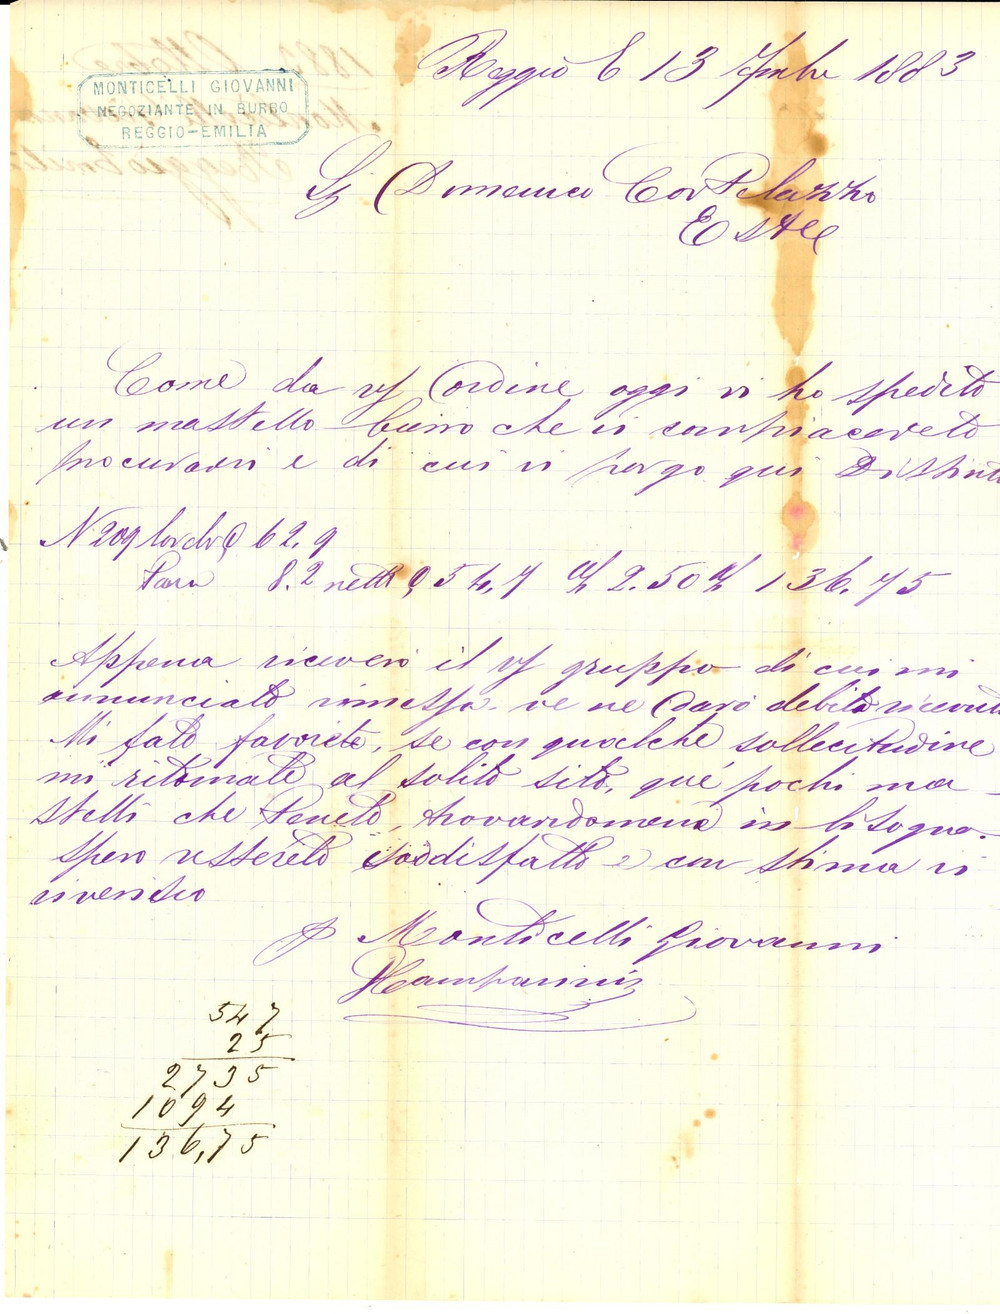 MONTICELLI GIOVANNI
NEGOZIANTE IN BURRO
REGGIO-EMILIA
Reggio E 13 7mbre 1883
Sig Domenico Cortelazzo
Este
Come da Vs ordine oggi vi ho spedito
un mastello burro che vi compiacerete
procurarvi e di cui vi porgo qui Distinta
N. 209 lordo 62.9
Tara 8.2 netto 54,7 2.50 136.75
Appena riceverò il Vs gruppo di cui mi
annunciate rimessa ve ne darò debito ricevuta
Mi fate favorite, se con qualche sollecitudine
mi ritornate al solito sito, que pochi ma-
stelli che tenete, trovandomene in bisogno.
Spero resterete soddisfatto e con stima vi
riverisco
P Monticelli Giovanni
Campanini
547
25
2735
1094
136,75